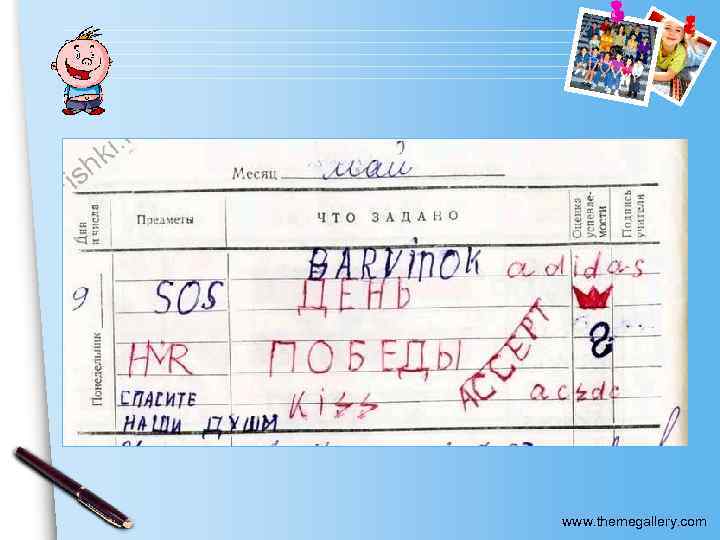 ishki.
Месяц май
Дни и числа
Предметы
ЧТО ЗАДАНО
Оценка успевае-мости
Подпись учителя
BARVINOK adidas
9 SOS ДЕНЬ
Понедельник
HMR ПОБЕДЫ ACCEPT
СПАСИТЕ KISS acϟdc
НАШИ ДУШЫ
www.themegallery.com